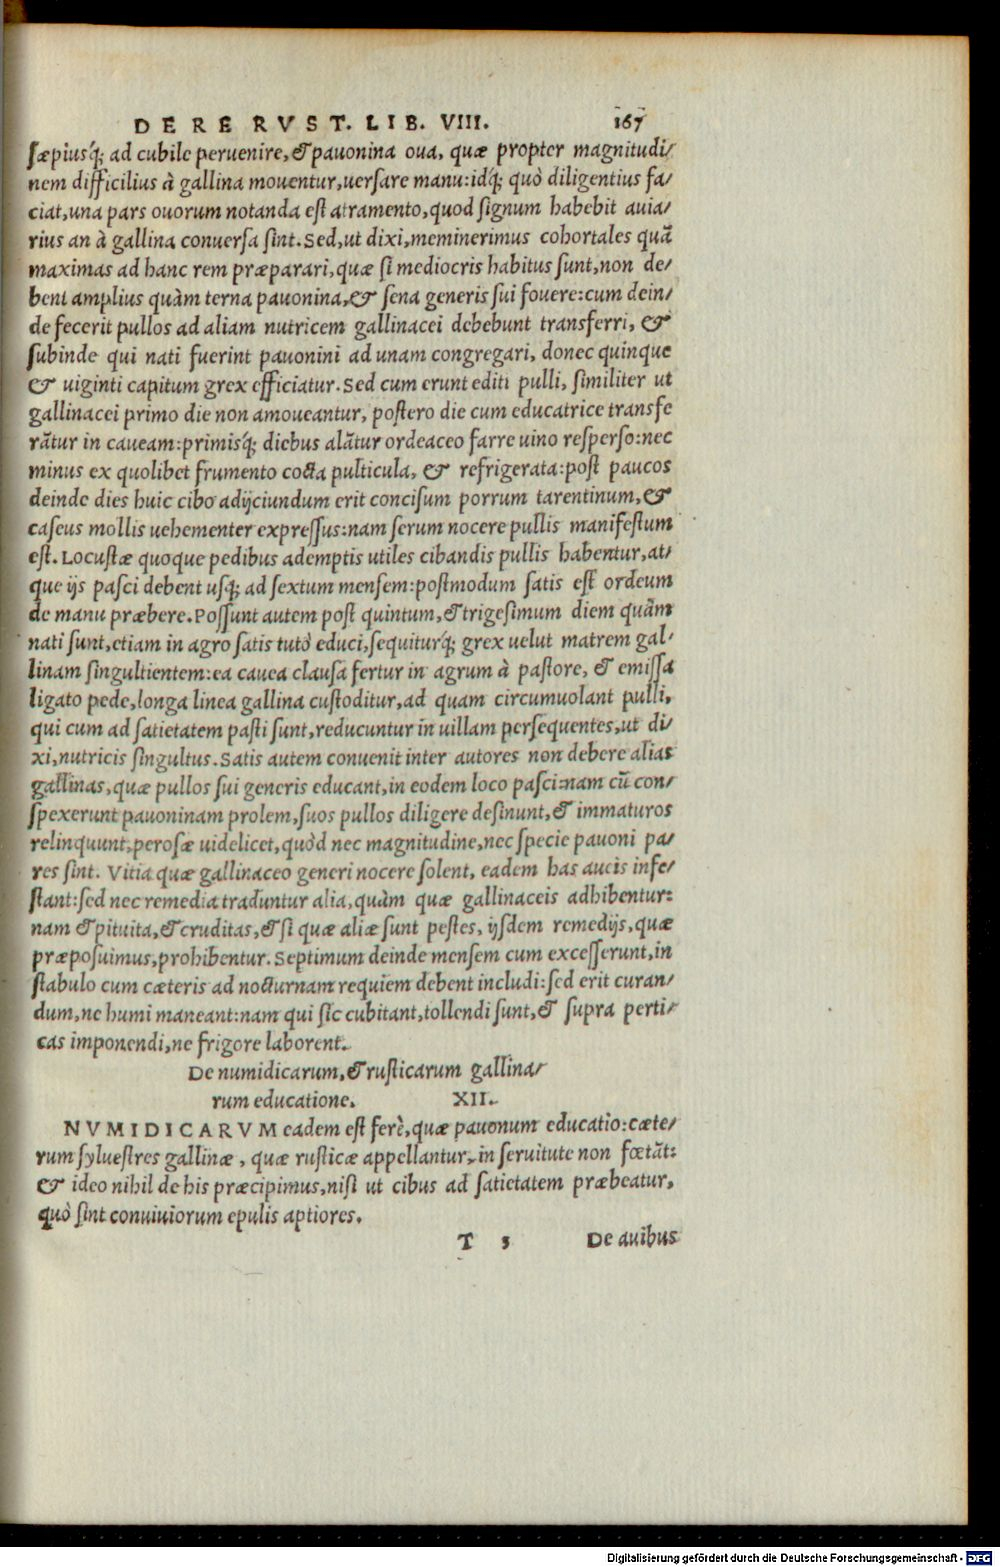 DE RE RVST. LIB. VIII. 167
sæpiusq́; ad cubile peruenire, & pauonina oua, quæ propter magnitudi-
nem difficilius à gallina mouentur, uersare manu: idq́; quò diligentius fa-
ciat, una pars ouorum notanda est atramento, quod signum habebit auia-
rius an à gallina conuersa sint. Sed, ut dixi, meminerimus cohortales quā
maximas ad hanc rem præparari, quæ si mediocris habitus sunt, non de-
bent amplius quàm terna pauonina, & sena generis sui fouere: cum dein-
de fecerit pullos ad aliam nutricem gallinacei debebunt transferri, &
subinde qui nati fuerint pauonini ad unam congregari, donec quinque
& uiginti capitum grex efficiatur. Sed cum erunt editi pulli, similiter ut
gallinacei primo die non amoueantur, postero die cum educatrice transfe
rātur in caueam: primisq́; diebus alātur ordeaceo farre uino resperso: nec
minus ex quolibet frumento cocta pulticula, & refrigerata: post paucos
deinde dies huic cibo adijciundum erit concisum porrum tarentinum, &
caseus mollis uehementer expressus: nam serum nocere pullis manifestum
est. Locustæ quoque pedibus ademptis utiles cibandis pullis habentur, at-
que ijs pasci debent usq́; ad sextum mensem: postmodum satis est ordeum
de manu præbere. Possunt autem post quintum, & trigesimum diem quàm
nati sunt, etiam in agro satis tutò educi, sequiturq́; grex uelut matrem gal-
linam singultientem: ea cauea clausa fertur in agrum à pastore, & emissa
ligato pede, longa linea gallina custoditur, ad quam circumuolant pulli,
qui cum ad satietatem pasti sunt, reducuntur in uillam persequentes, ut di-
xi, nutricis singultus. Satis autem conuenit inter autores non debere alias
gallinas, quæ pullos sui generis educant, in eodem loco pasci: nam cū con-
spexerunt pauoninam prolem, suos pullos diligere desinunt, & immaturos
relinquunt, perosæ uidelicet, quòd nec magnitudine, nec specie pauoni pa-
res sint. Vitia quæ gallinaceo generi nocere solent, eadem has aueis infe-
stant: sed nec remedia traduntur alia, quàm quæ gallinaceis adhibentur:
nam & pituita, & cruditas, & si quæ aliæ sunt pestes, ijsdem remedijs, quæ
præposuimus, prohibentur. Septimum deinde mensem cum excesserunt, in
stabulo cum cæteris ad nocturnam requiem debent includi: sed erit curan-
dum, ne humi maneant: nam qui sic cubitant, tollendi sunt, & supra perti-
cas imponendi, ne frigore laborent.
De numidicarum, & rusticarum gallina-
rum educatione. XII.
NVMIDICARVM eadem est ferè, quæ pauonum educatio: cæte-
rum syluestres gallinæ, quæ rusticæ appellantur, in seruitute non fœtāt:
& ideo nihil de his præcipimus, nisi ut cibus ad satietatem præbeatur,
quò sint conuiuiorum epulis aptiores.
T 3 De auibus
Digitalisierung gefördert durch die Deutsche Forschungsgemeinschaft - DFG